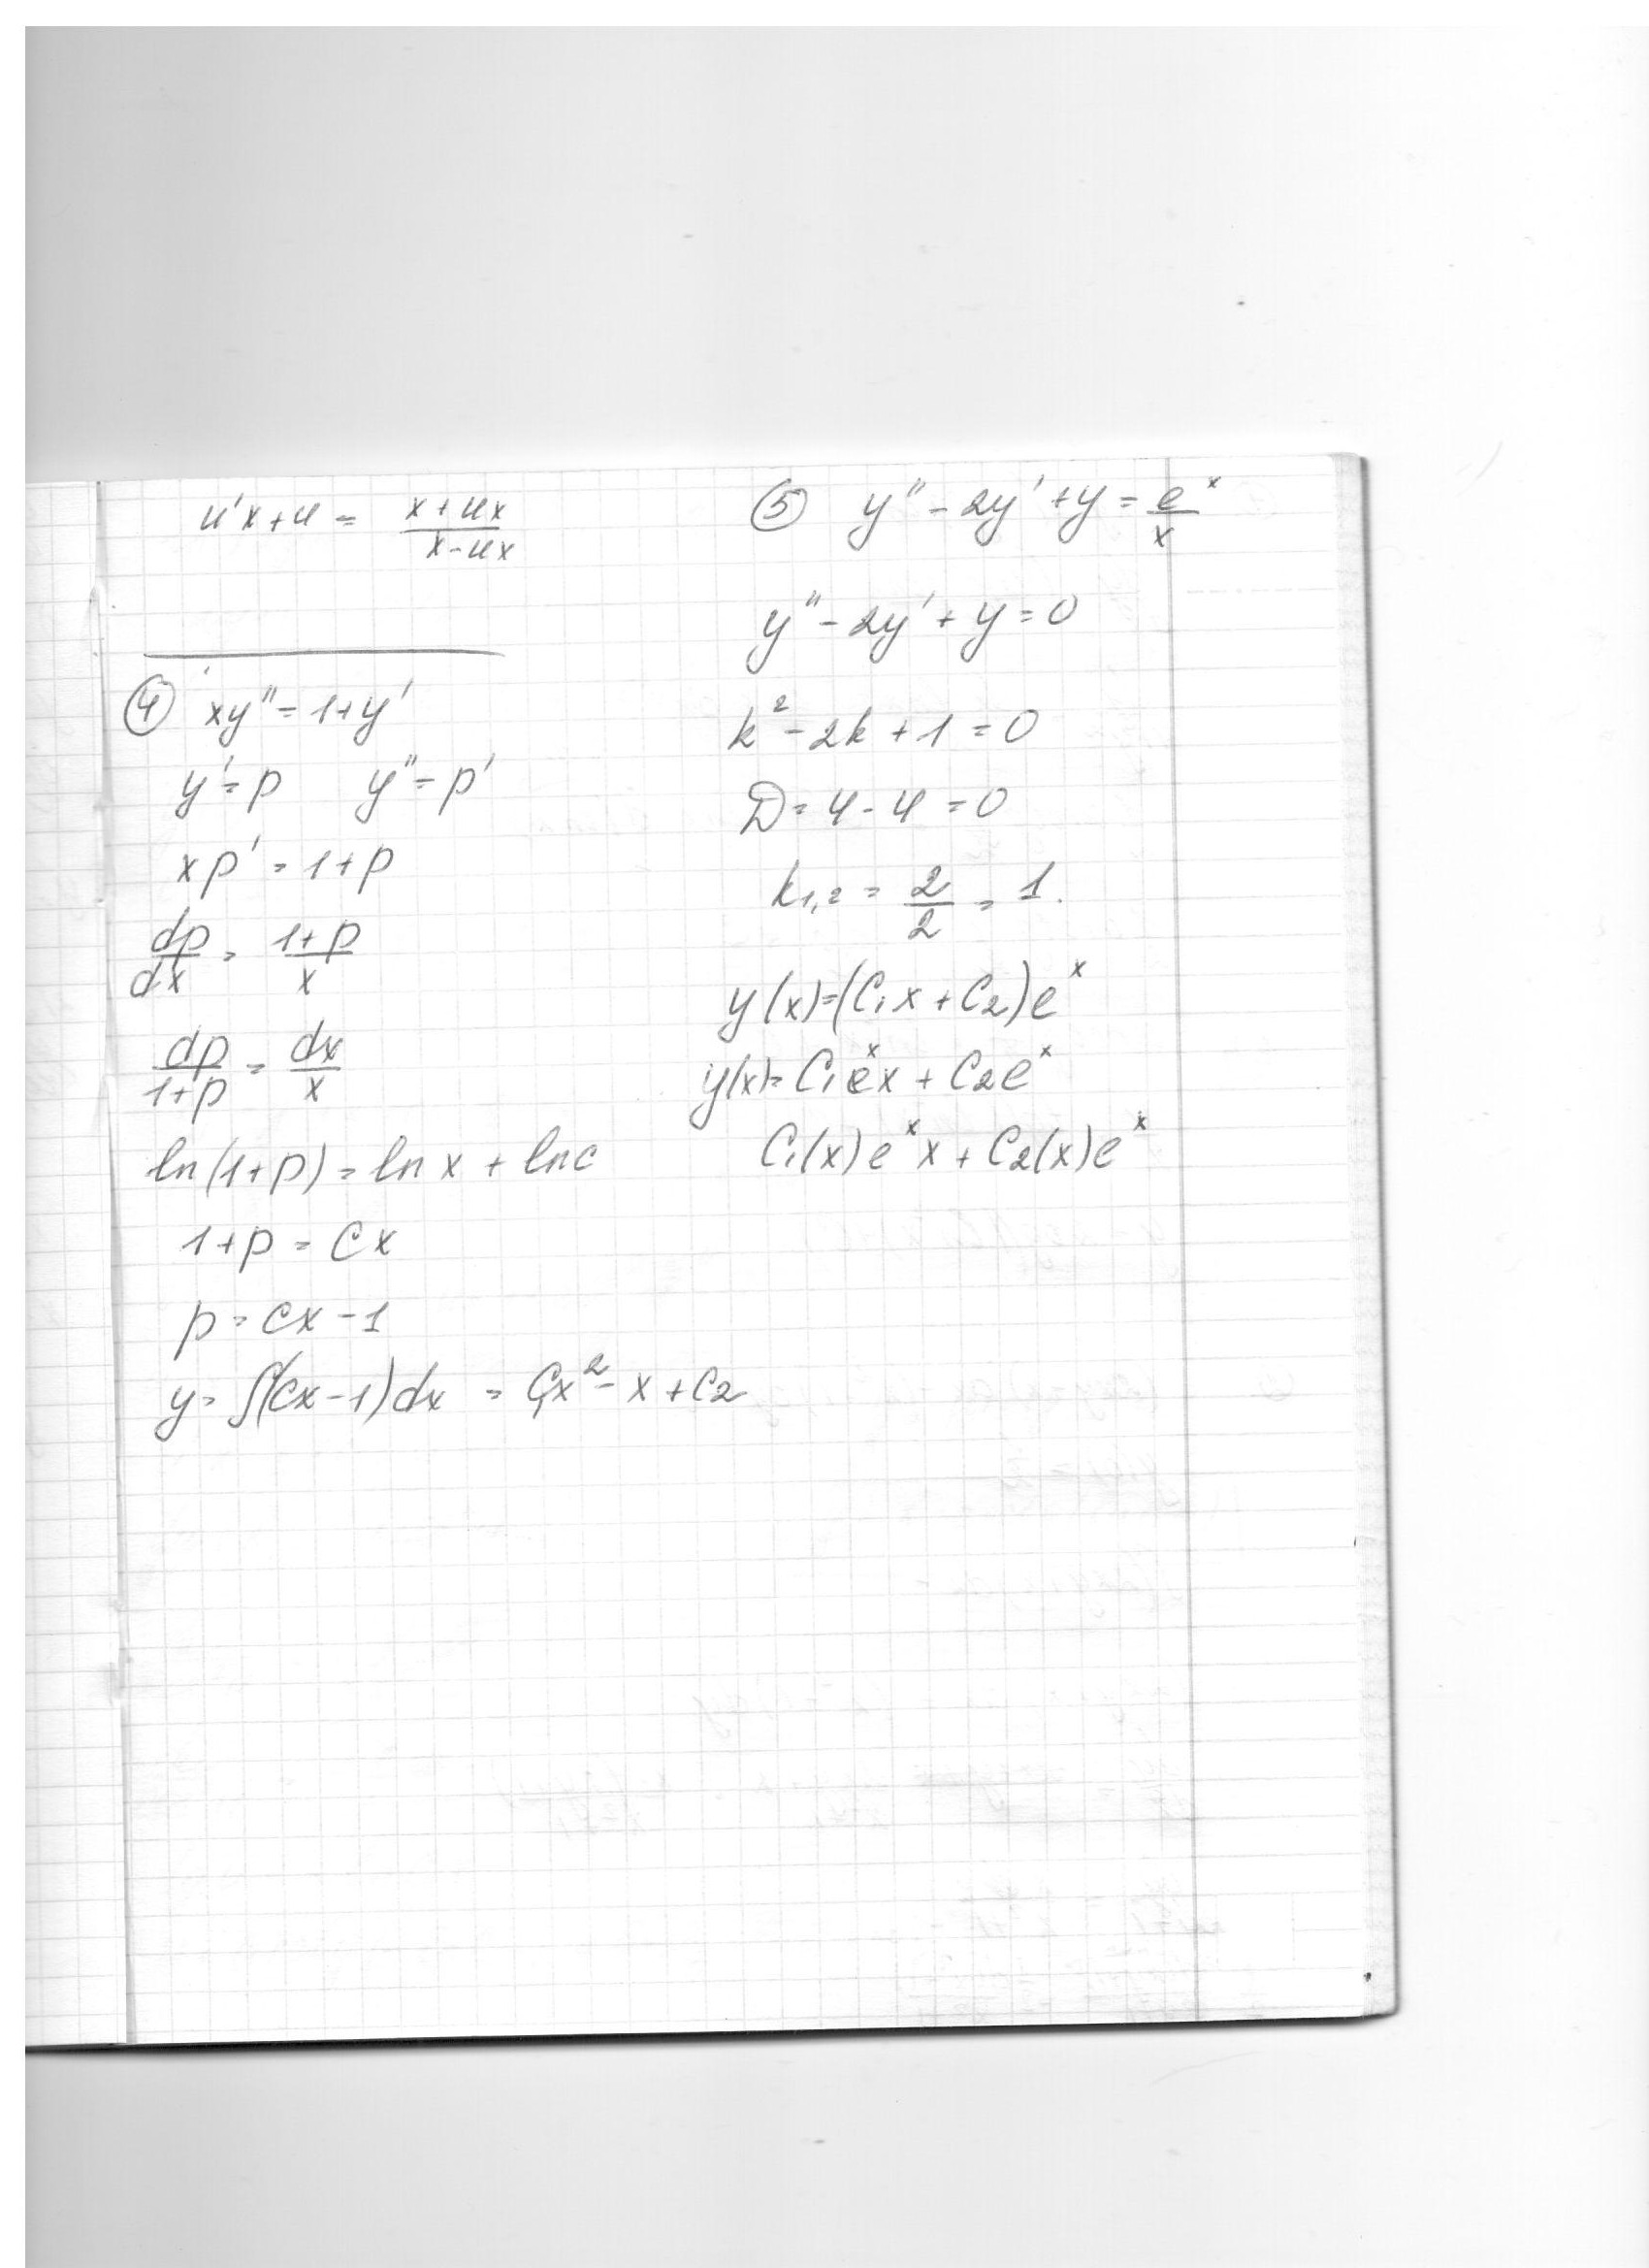 u'x+u = (x+ux)/(x-ux)
④ xy''=1+y'
y'=p y''=p'
xp'=1+p
dp/dx = (1+p)/x
dp/(1+p) = dx/x
ln(1+p)=ln x + ln c
1+p = Cx
p = Cx-1
y=∫(Cx-1)dx = C₁x²-x+C₂
⑤ y''-2y'+y=eˣ/x
y''-2y'+y=0
k²-2k+1=0
D=4-4=0
k₁,₂ = 2/2 = 1.
y(x)=(C₁x+C₂)eˣ
y(x)=C₁eˣx+C₂eˣ
C₁(x)eˣx+C₂(x)eˣ